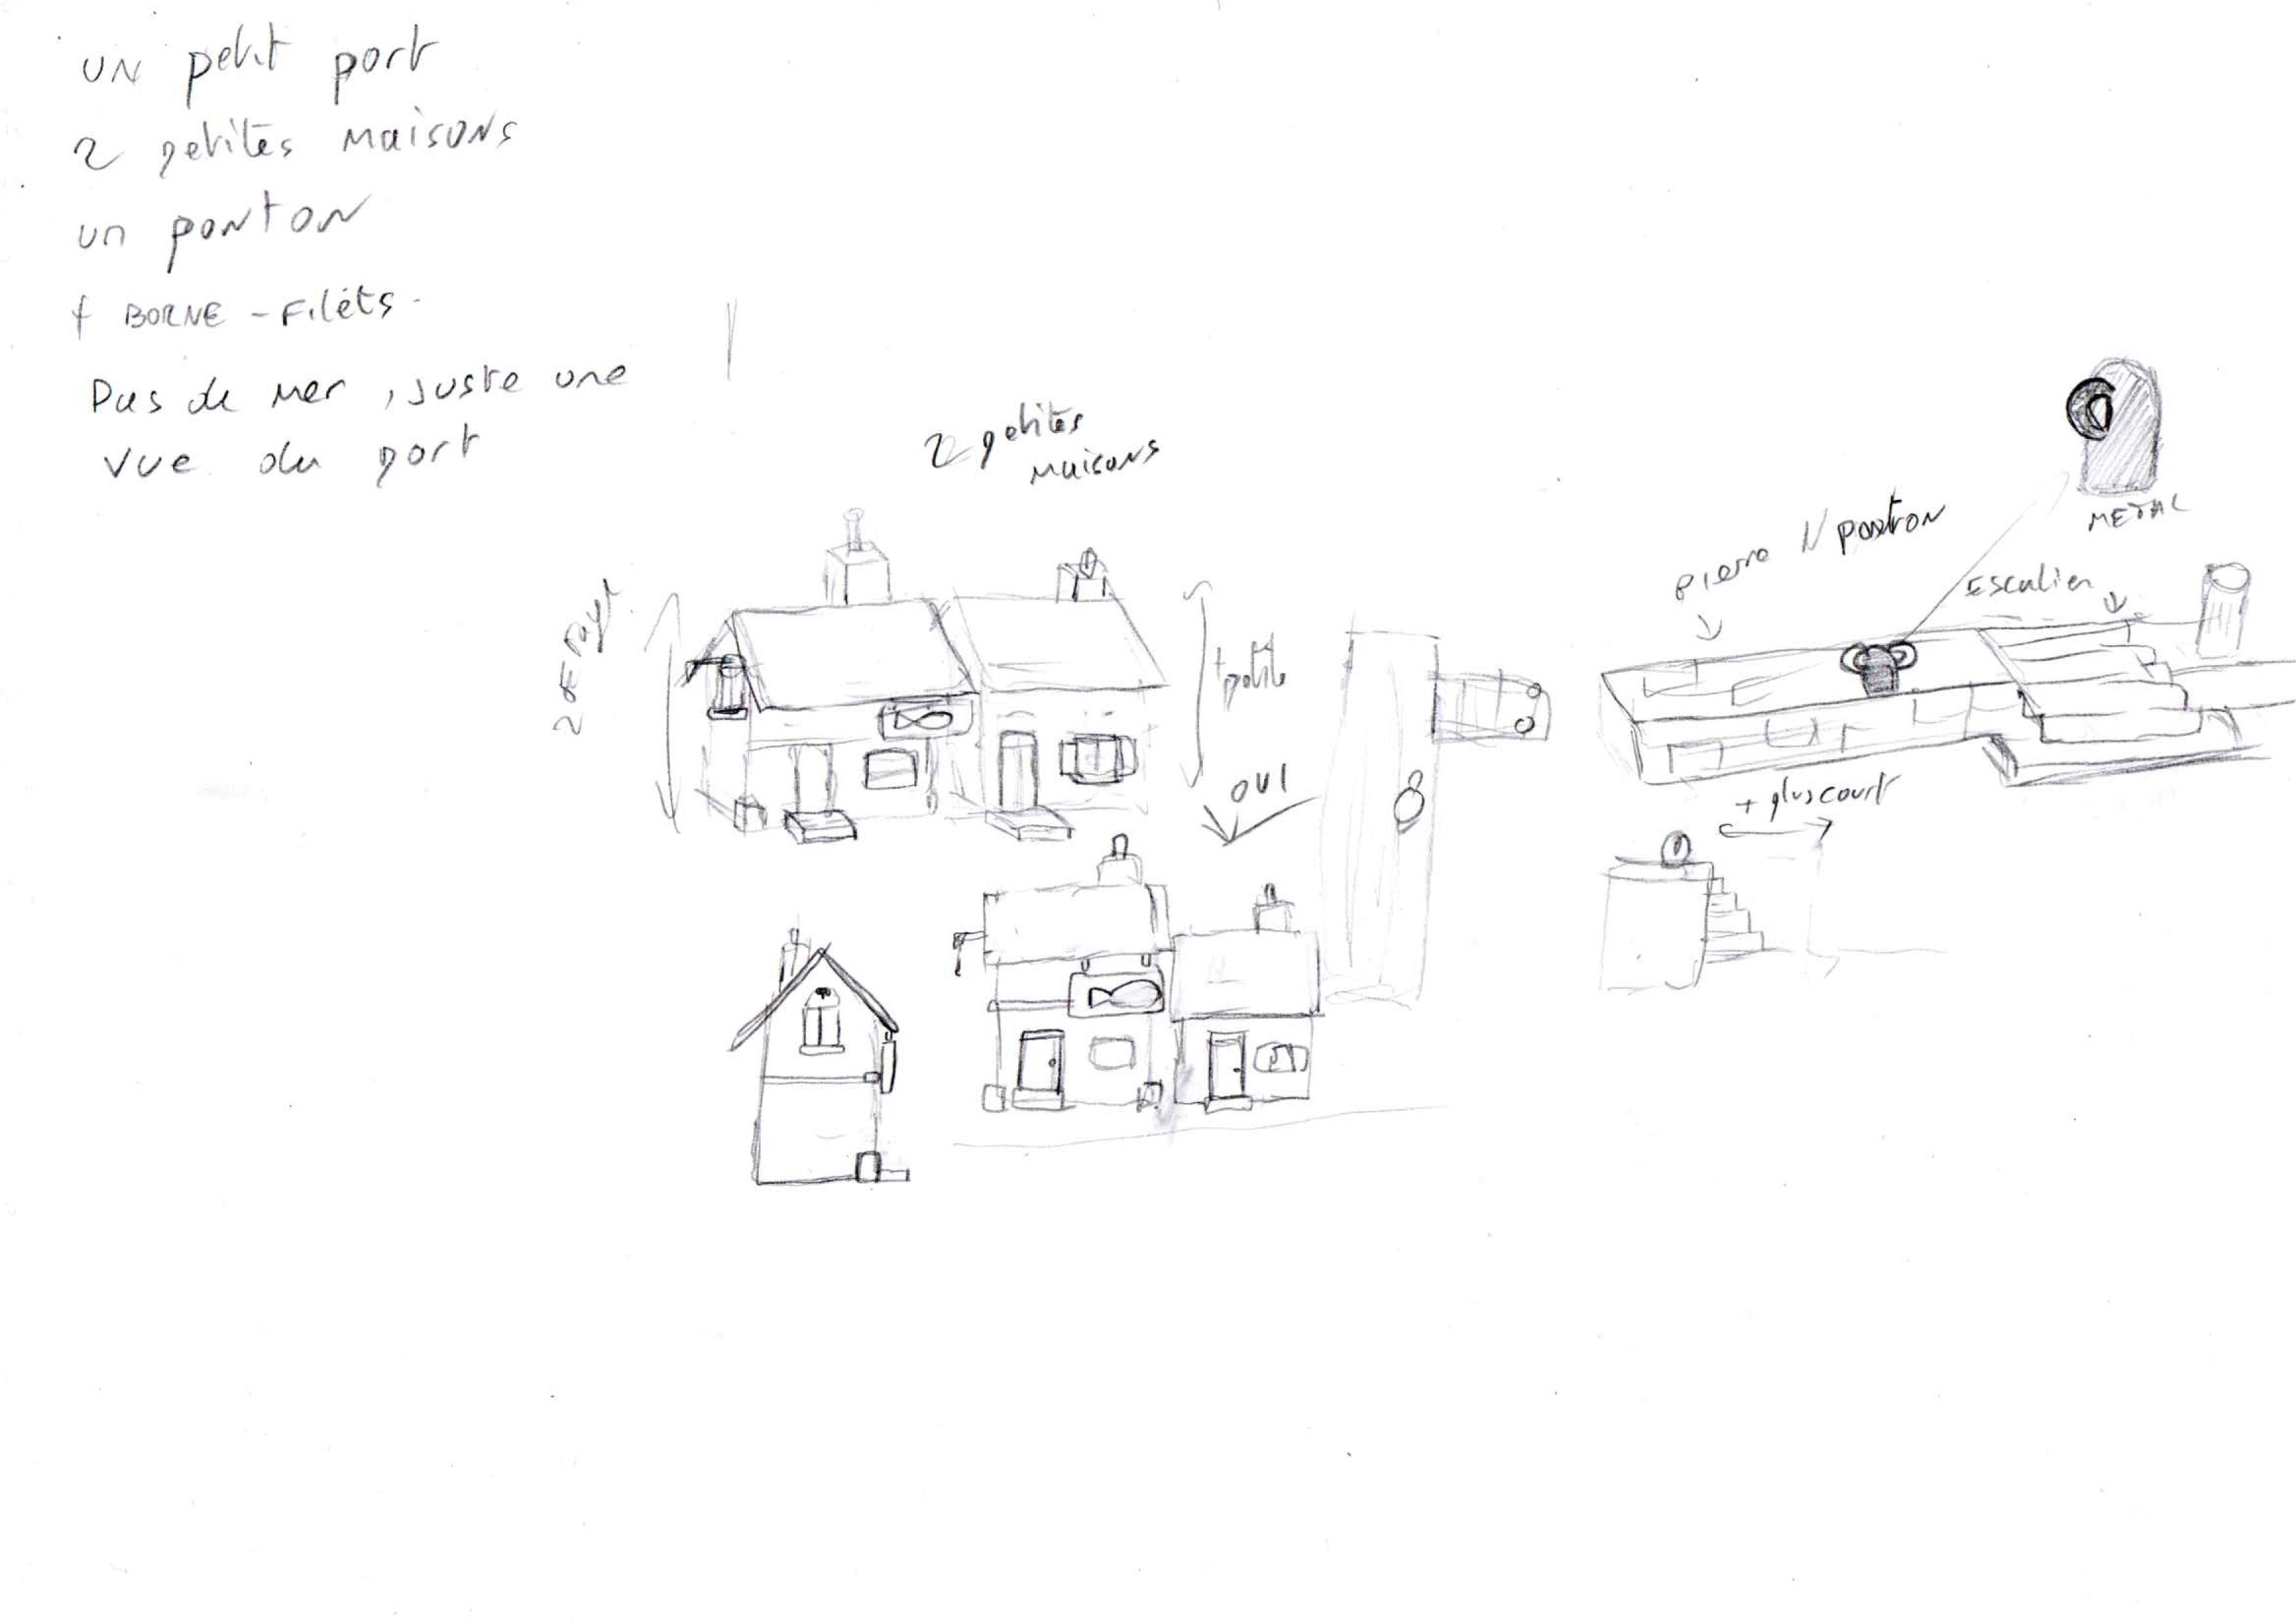 UN petit port
2 petites maisons
un ponton
+ BORNE - Filets -
Pas de mer, juste une
vue du port
2 petites
maisons
+ petite
OUI
pierre
ponton
Escalier
METAL
+ plus court